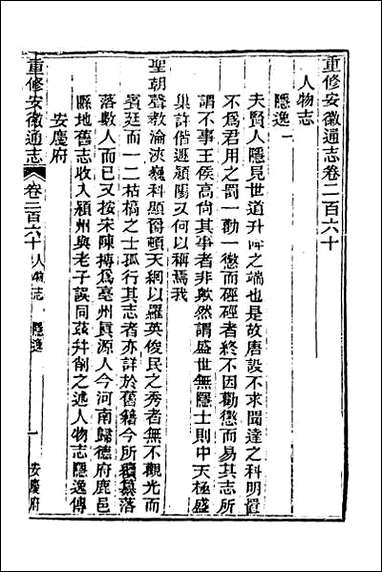 重修安徽通志卷二百六十
人物志
隱逸一
夫賢人隱見世道升降之端也是故唐設不求聞達之科明置
不爲君用之罰一勸一懲而硜硜者終不因勸懲而易其志所
謂不事王侯高尚其事者非歟然謂盛世無隱士則中天極盛
巢許偕遯潁陽又何以稱焉我
聖朝聲敎淪浹巍科顯爵頓天網以羅英俊民之秀者無不觀光而
賓廷而一二枯槁之士孤行其志者亦詳於舊籍今所纂落
落數人而已又按宋陳摶爲亳州眞源人今河南歸德府鹿邑
縣地舊志收入潁州與老子誤同茲幷削之述人物志隱逸傳
安慶府
重修安徽通志
卷二百六十
人物志
隱逸
一
安慶府